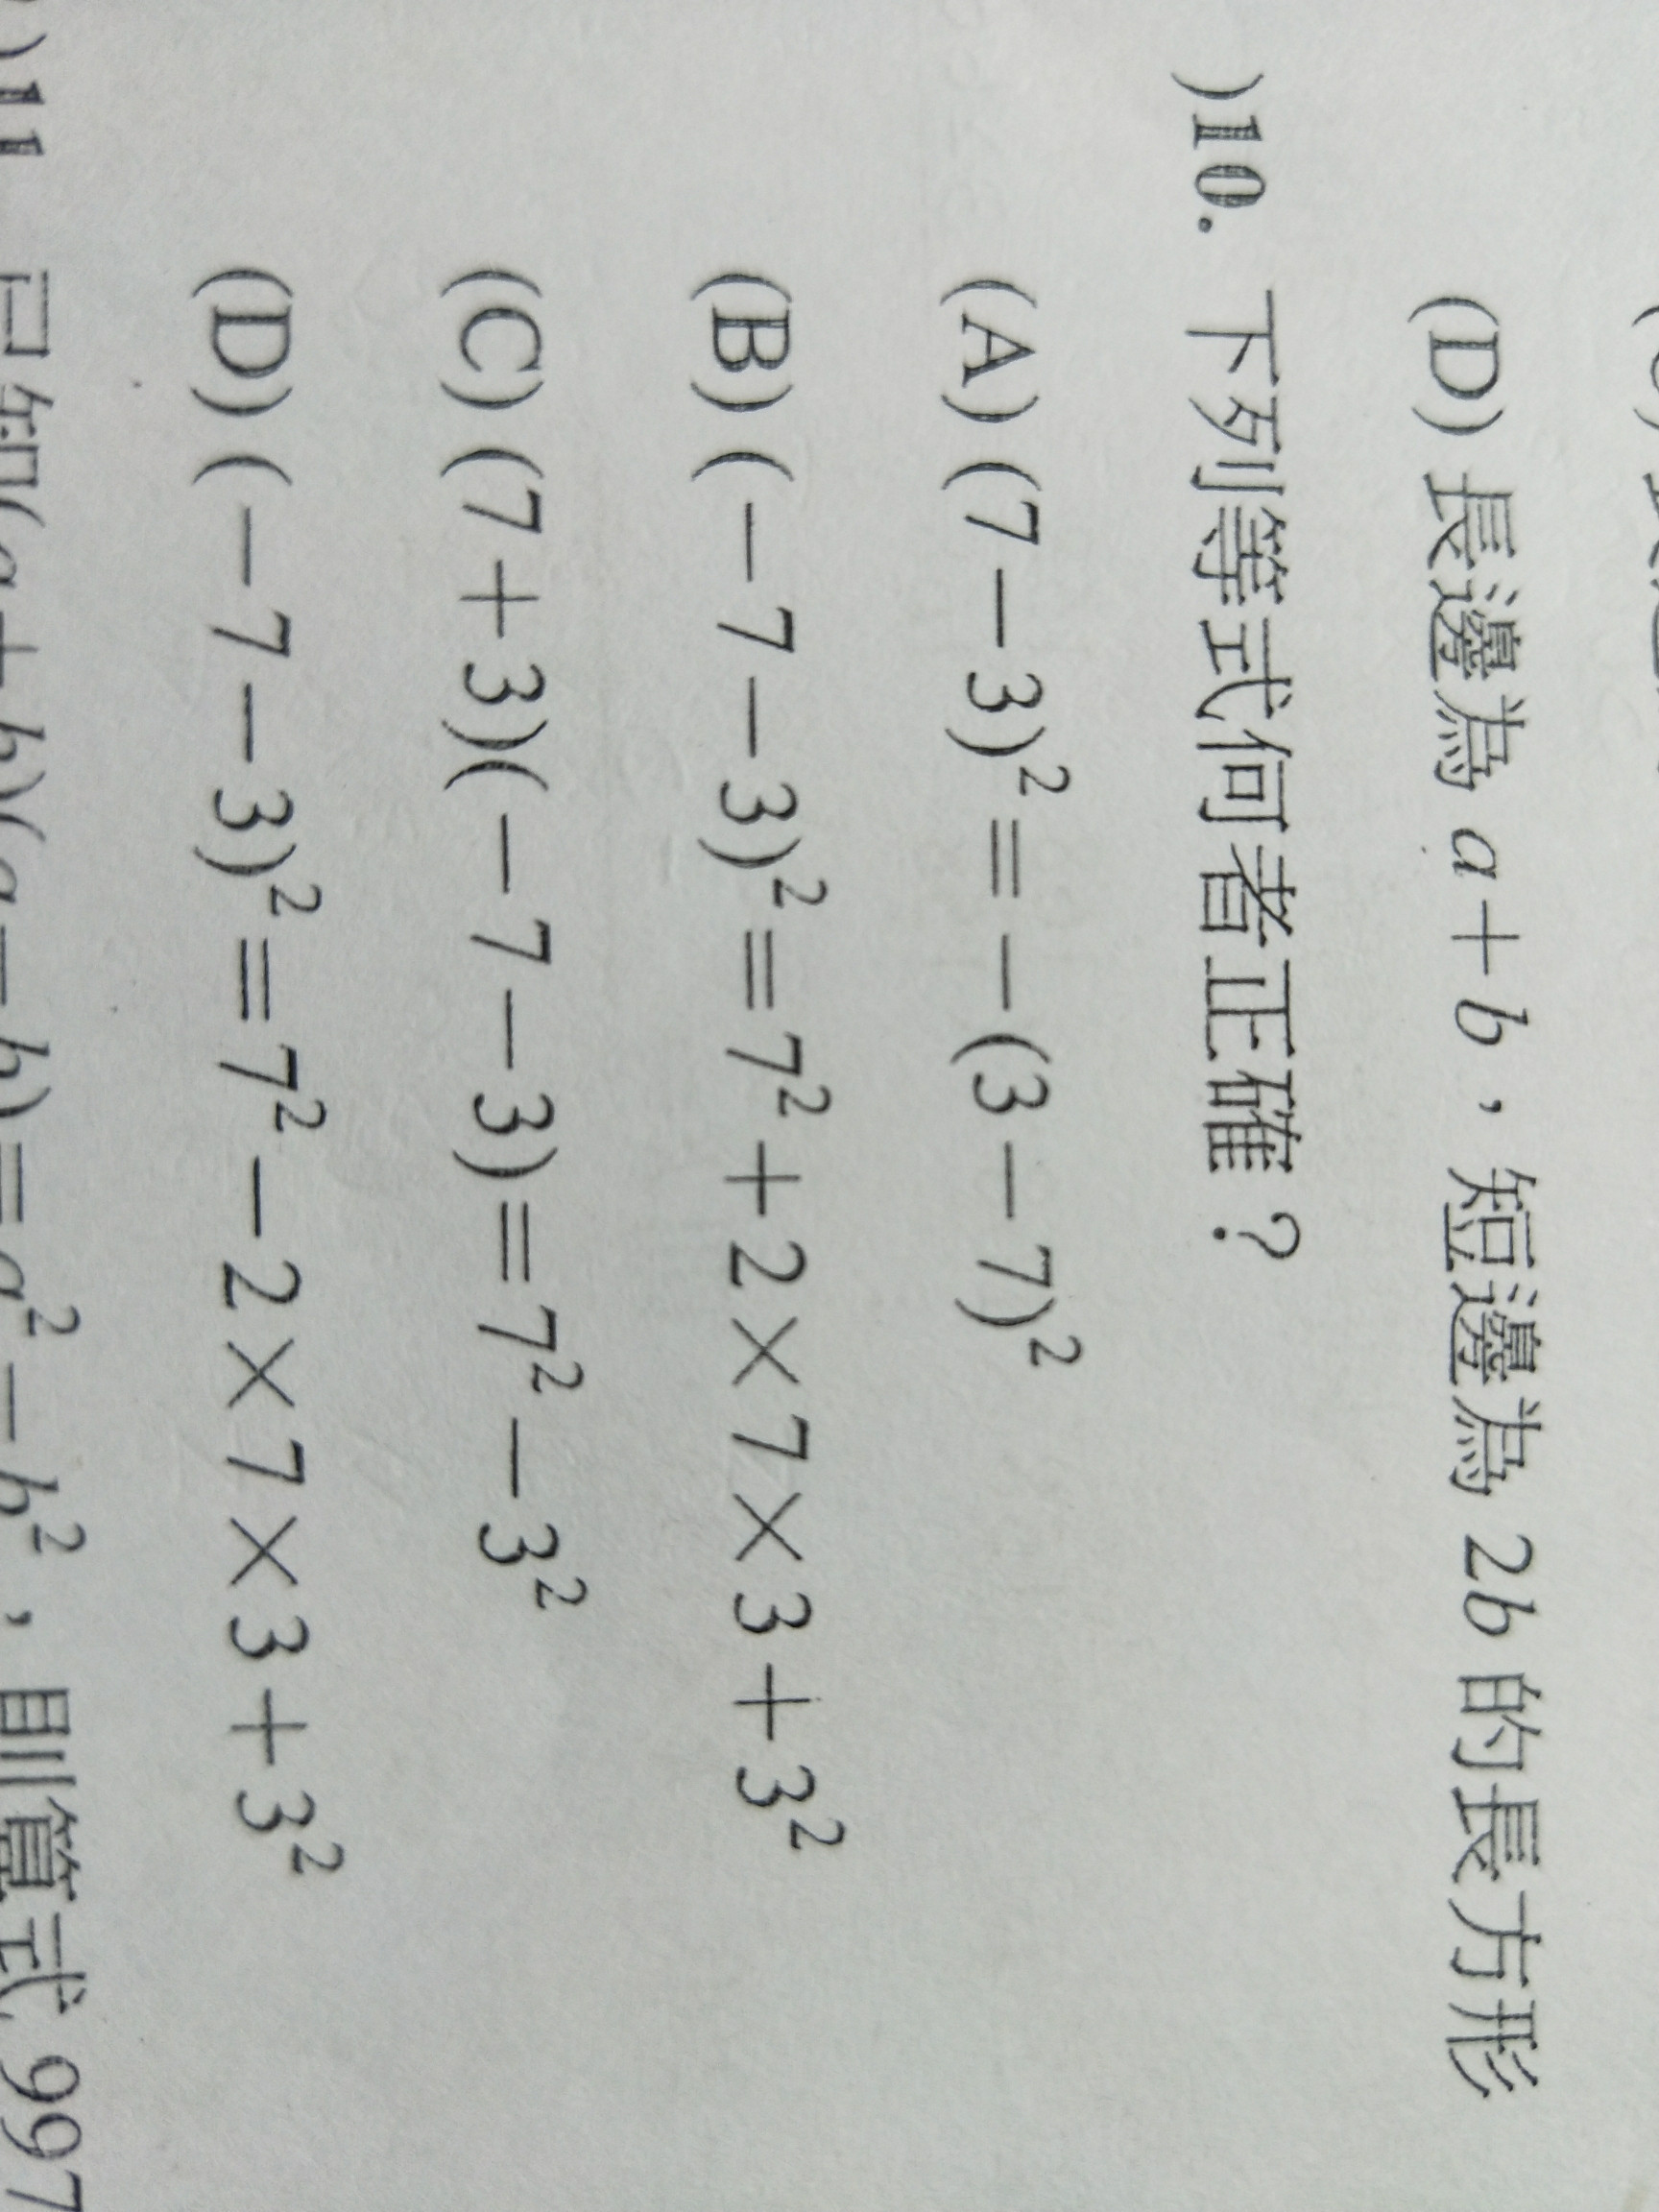 (D) 長邊為 a＋b，短邊為 2b 的長方形
)10. 下列等式何者正確？
(A) (7－3)²＝－(3－7)²
(B) (－7－3)²＝7²＋2×7×3＋3²
(C) (7＋3)(－7－3)＝7²－3²
(D) (－7－3)²＝7²－2×7×3＋3²
)11 已知(a＋b)(a－b)＝a²－b²，則算式 997